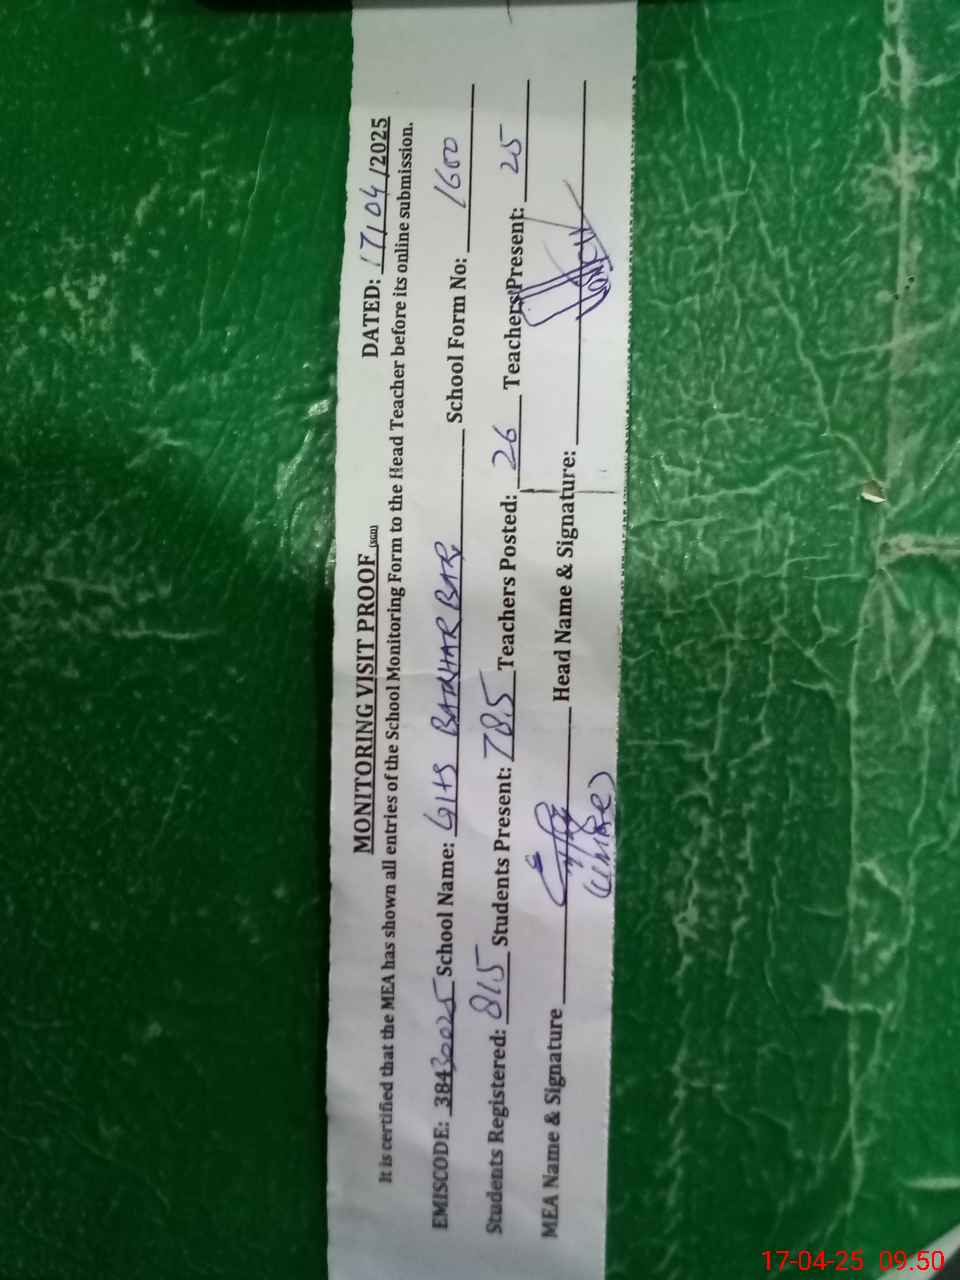 MONITORING VISIT PROOF (SGD) DATED: 17/04/2025
It is certified that the MEA has shown all entries of the School Monitoring Form to the Head Teacher before its online submission.
EMISCODE: 38430025 School Name: GHS BARHAR BAR School Form No: 1600
Students Registered: 815 Students Present: 785 Teachers Posted: 26 Teachers Present: 25
MEA Name & Signature Head Name & Signature:
17-04-25 09.50